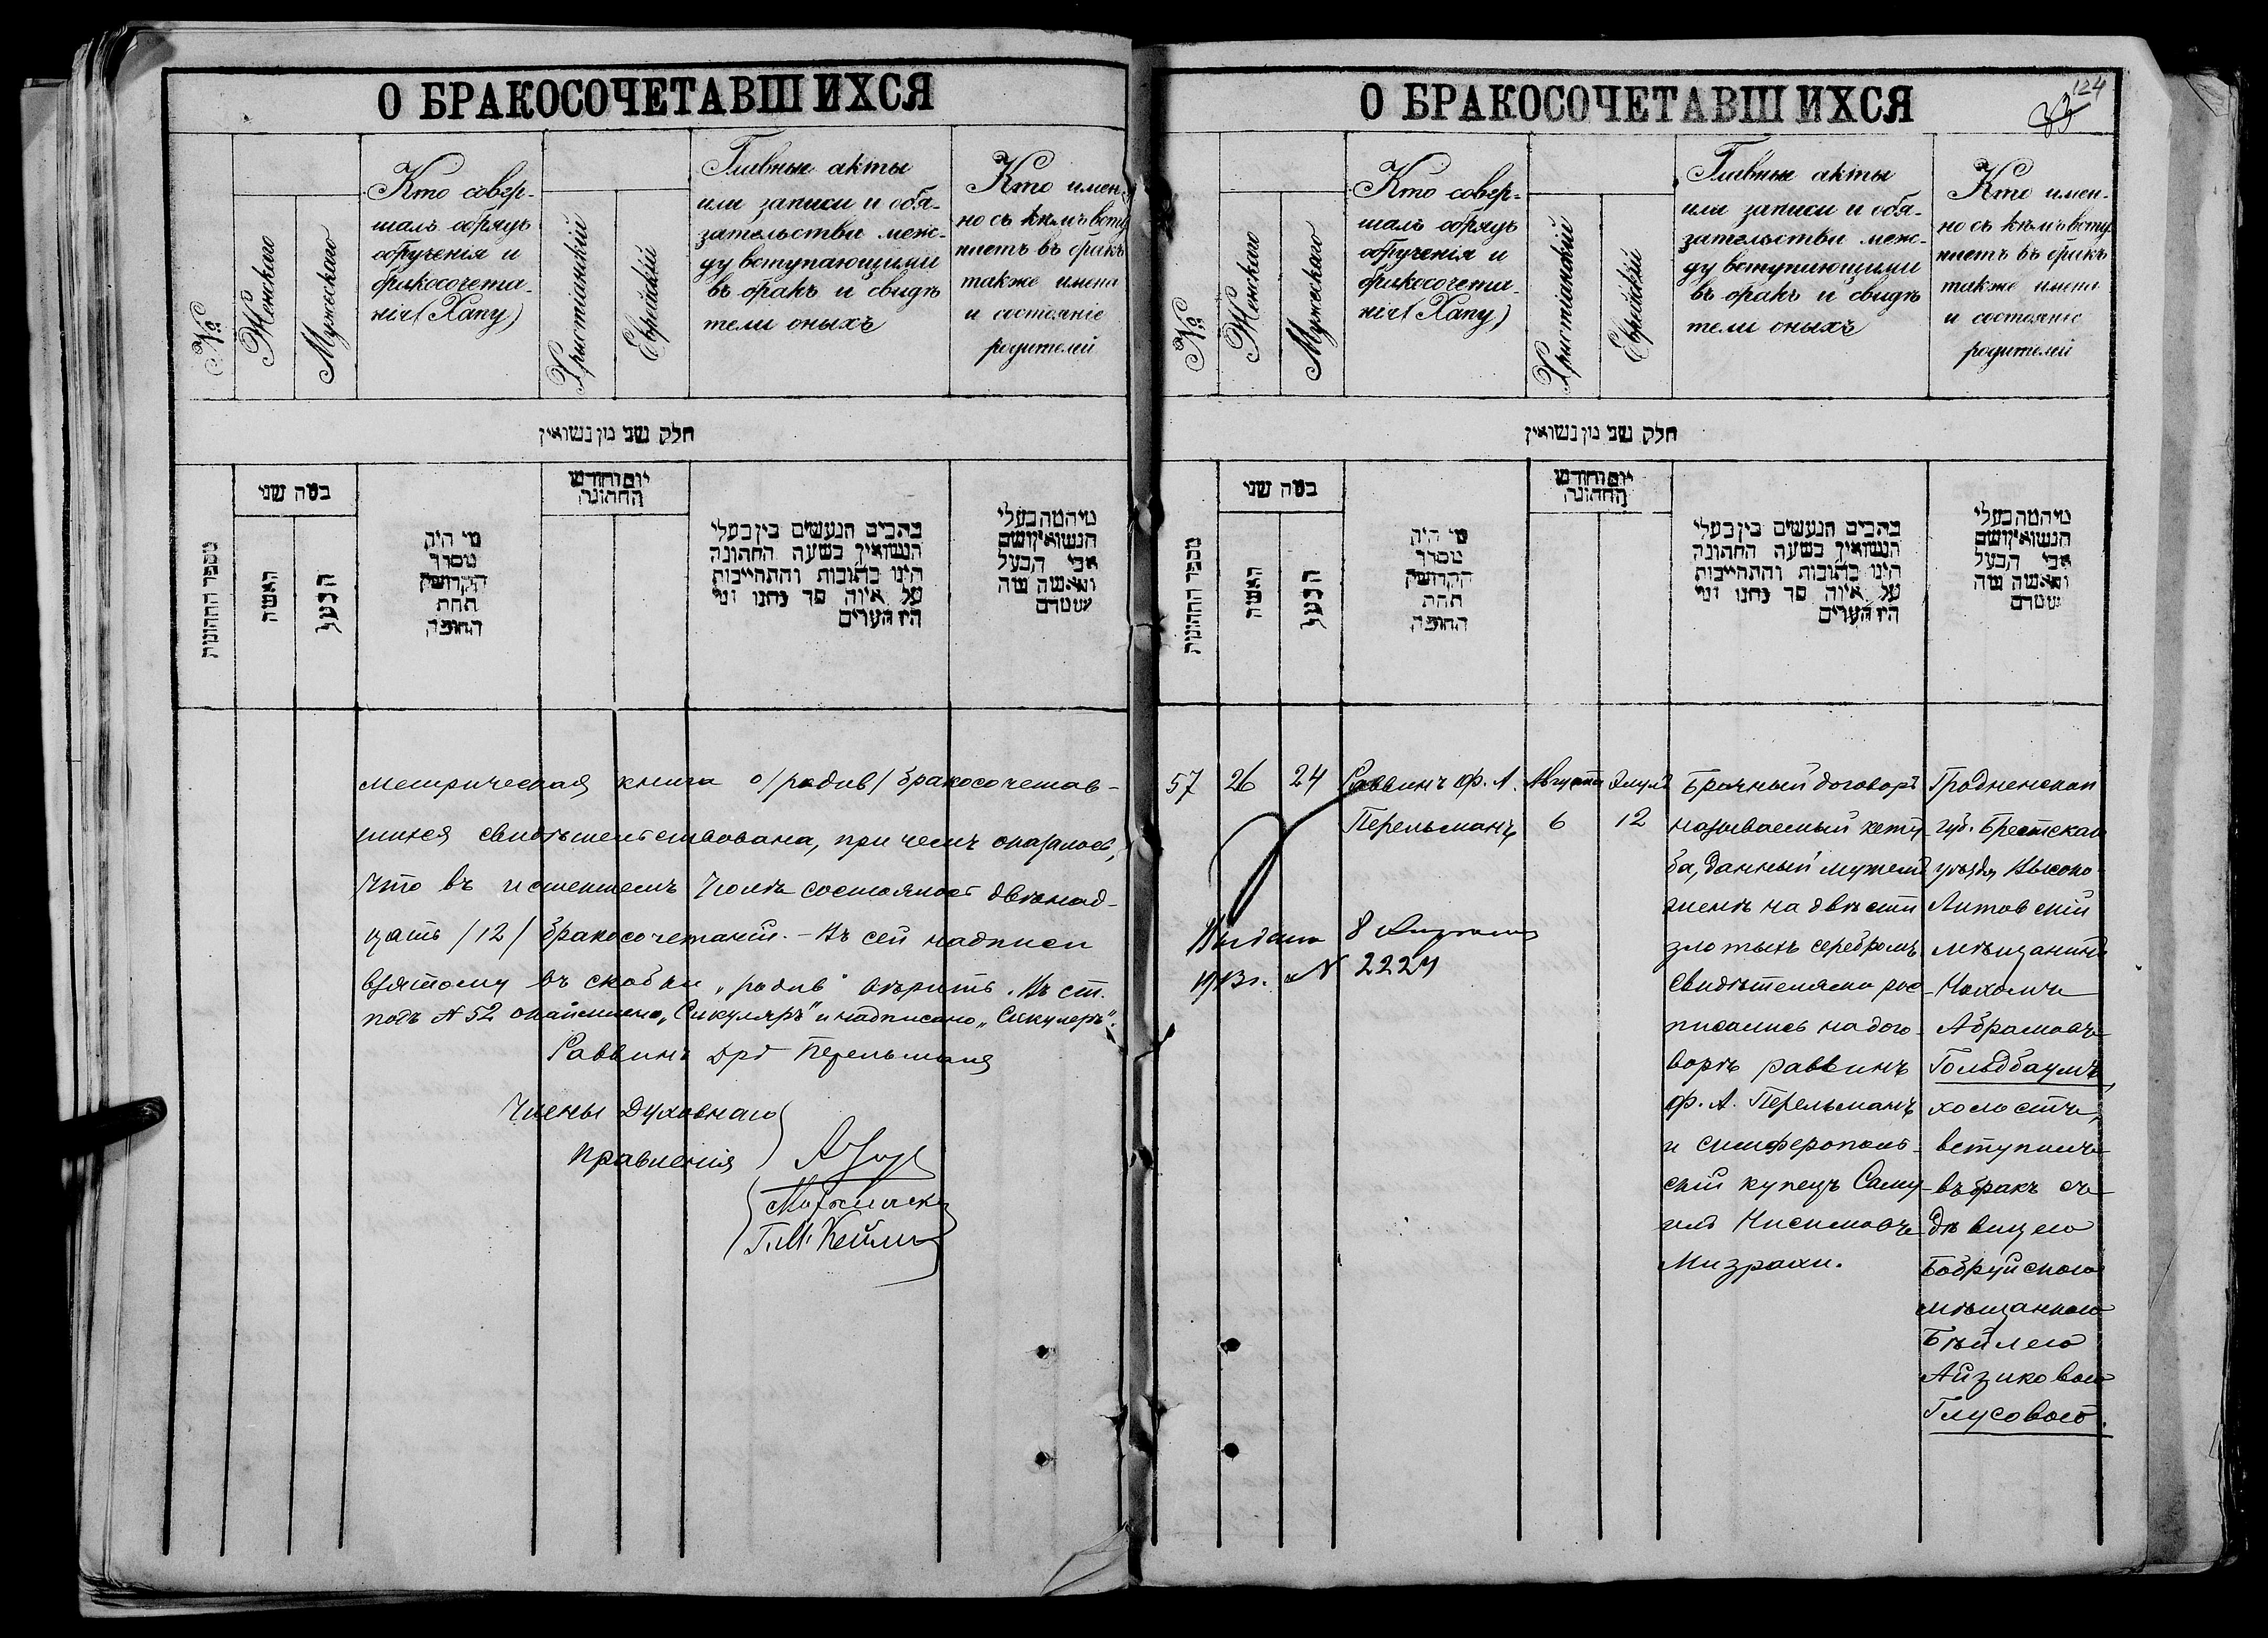 О БРАКОСОЧЕТАВШИХСЯ
№
Женскаго
Мужескаго
Кто совер-
шалъ обрядъ
обрученія и
бракосочета-
нія (Хапу)
Христіанскій
Еврейскій
Главные акты
или записи и обя-
зательства меж-
ду вступающими
въ бракъ и свидѣ
тели оныхъ
Кто имен-
но съ кѣмъ всту
паетъ въ бракъ
также имена
и состояніе
родителей
חלק שני מן נשואין
מספר החתונות
האשה
הבעל
מי היה
מסדר
הקדושין
תחת
החופה
יום וחודש
החתונה
הנשואין בשעה החתונה
הינו כתובות והתחייבות
метрическая книга о /родив/ бракосочетав-
шихся свидѣтельствована, при чемъ оказалось,
что въ истекшемъ Іюлѣ состоялось двѣнад-
цать /12/ бракосочетаній. - Въ сей надписи
взятому въ скобки „родив“ вѣрить. Въ ст.
подъ № 52 „Сикуляръ“ и надписано „Сикулеръ“.
Раввинъ Дръ Перельманъ
Члены Духовнаго
Правленія
О БРАКОСОЧЕТАВШИХСЯ
124
83
№
Женскаго
Мужескаго
Кто совер-
шалъ обрядъ
обрученія и
бракосочета-
нія (Хапу)
Христіанскій
Еврейскій
Главные акты
или записи и обя-
зательства меж-
ду вступающими
въ бракъ и свидѣ
тели оныхъ
Кто имен-
но съ кѣмъ всту
паетъ въ бракъ
также имена
и состояніе
родителей
חלק שני מן נשואין
מספר החתונות
האשה
הבעל
מי היה
מסדר
הקדושין
תחת
החופה
יום וחודש
החתונה
הנשואין בשעה החתונה
הינו כתובות והתחייבות
57
26
24
Раввинъ Ф. А.
Перельманъ
Августа
6
Элулъ
12
Выдана 8
1913г. № 2224
Брачный договоръ
называемый кету-
ба, данный мужемъ
женѣ на двѣсти
злотыхъ серебромъ
Свидѣтелями рос-
писались на дого-
ворѣ раввинъ
Ф. А. Перельманъ
и симферополь-
скій купецъ Саму-
илъ Нисимовъ
Мизрахи.
Гродненской
губ. Брестскаго
уѣзда, Высоко-
Литовскій
мѣщанинъ
Нахомъ
Абрамовъ
Гольдбаумъ,
холостъ,
вступилъ
въ бракъ съ
дѣвицею
Бобруйскою
мѣщанкою
Бейлею
Айзиковою
Глусовою.